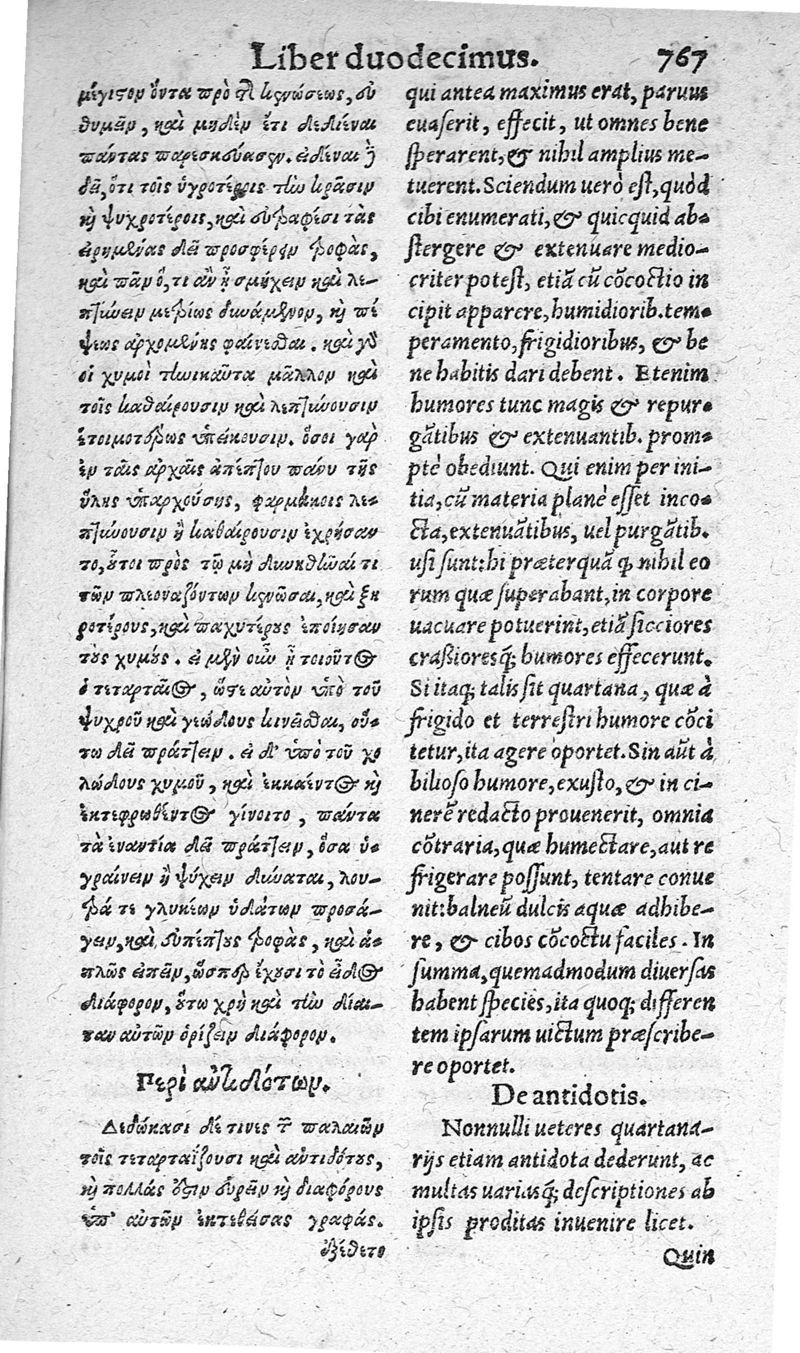 Liber duodecimus. 767
μέγιστον ὄντα πρὸ τῆς κενώσεως, εὐ
θυμεῖν, καὶ μηδὲν ἔτι δεδιέναι
πάντας παρεσκεύασεν. εἰδέναι δὲ
δεῖ, ὅτι τοῖς ὑγροτέροις τὴν κρᾶσιν
καὶ ψυχροτέροις, καὶ εὐσαρκέσι τὰς
εἰρημένας δεῖ προσφέρειν τροφὰς,
καὶ πᾶν ὅ, τι ἂν ᾖ σμήχειν καὶ λε-
πτύνειν μετρίως δυνάμενον, καὶ πέ
ψεως ἀρχομένης φαίνεσθαι. καὶ γὰρ
οἱ χυμοὶ τηνικαῦτα μᾶλλον καὶ
τοῖς καθαίρουσιν καὶ λεπτύνουσιν
ἑτοιμοτέρως ὑπείκουσιν. ὅσοι γὰρ
ἐν ταῖς ἀρχαῖς ἀπέπτου πάνυ τῆς
ὕλης ὑπαρχούσης, φαρμάκοις λε-
πτύνουσιν ἢ καθαίρουσιν ἐχρήσαν
το, οὗτοι πρὸς τῷ μὴ δυνηθῆναί τι
τῶν πλεοναζόντων κενῶσαι, καὶ ξη
ροτέρους, καὶ παχυτέρους ἐποίησαν
τοὺς χυμούς. εἰ μὲν οὖν ᾖ τοιοῦτος
ὁ τεταρταῖος, ὥστε αὐτὸν ὑπὸ τοῦ
ψυχροῦ καὶ γεώδους κινεῖσθαι, οὕ-
τω δεῖ πράττειν. εἰ δ' ὑπὸ τοῦ χο
λώδους χυμοῦ, καὶ ἐκκαέντος καὶ
ἐκτεφρωθέντος γίνοιτο, πάντα
τὰ ἐναντία δεῖ πράττειν, ὅσα ὑ-
γραίνειν ἢ ψύχειν δύναται, λου-
τρά τε γλυκέων ὑδάτων προσά-
γειν, καὶ εὐπέπτους τροφὰς, καὶ ἁ-
πλῶς εἰπεῖν, ὥσπερ ἔχουσι τὸ εἶδος
διάφορον, οὕτω χρὴ καὶ τὴν δίαι-
ταν αὐτῶν ὁρίζειν διάφορον.
Περὶ ἀντιδότων.
Δεδώκασι δέ τινες τῶν παλαιῶν
τοῖς τεταρταΐζουσι καὶ ἀντιδότους,
καὶ πολλάς ἐστιν εὑρεῖν καὶ διαφόρους
ὑπ' αὐτῶν ἐκτεθείσας γραφάς.
qui antea maximus erat, paruus
euaserit, effecit, ut omnes bene
sperarent, & nihil amplius me-
tuerent. Sciendum uerò est, quòd
cibi enumerati, & quicquid ab-
stergere & extenuare medio-
criter potest, etiã cũ cõcoctio in
cipit apparere, humidiorib. tem-
peramento, frigidioribus, & be
ne habitis dari debent. Etenim
humores tunc magis & repur-
gãtibus & extenuantib. prom-
ptè obediunt. Qui enim per ini-
tia, cũ materia planè esset inco-
cta, extenuãtibus, uel purgãtib.
usi sunt: hi præterquã ꝙ nihil eo
rum quæ superabant, in corpore
uacuare potuerint, etiã sicciores
crassioresq; humores effecerunt.
Si itaq; talis sit quartana, quæ à
frigido et terrestri humore cõci
tetur, ita agere oportet. Sin aũt à
bilioso humore, exusto, & in ci-
nerẽ redacto prouenerit, omnia
cõtraria, quæ humectare, aut re
frigerare possunt, tentare conue
nit: balneũ dulcis aquæ adhibe-
re, & cibos cõcoctu faciles. In
summa, quemadmodum diuersas
habent species, ita quoq; differen
tem ipsarum uictum præscribe-
re oportet.
De antidotis.
Nonnulli ueteres quartana-
rijs etiam antidota dederunt, ac
multas uariasq; descriptiones ab
ipsis proditas inuenire licet.
Quin